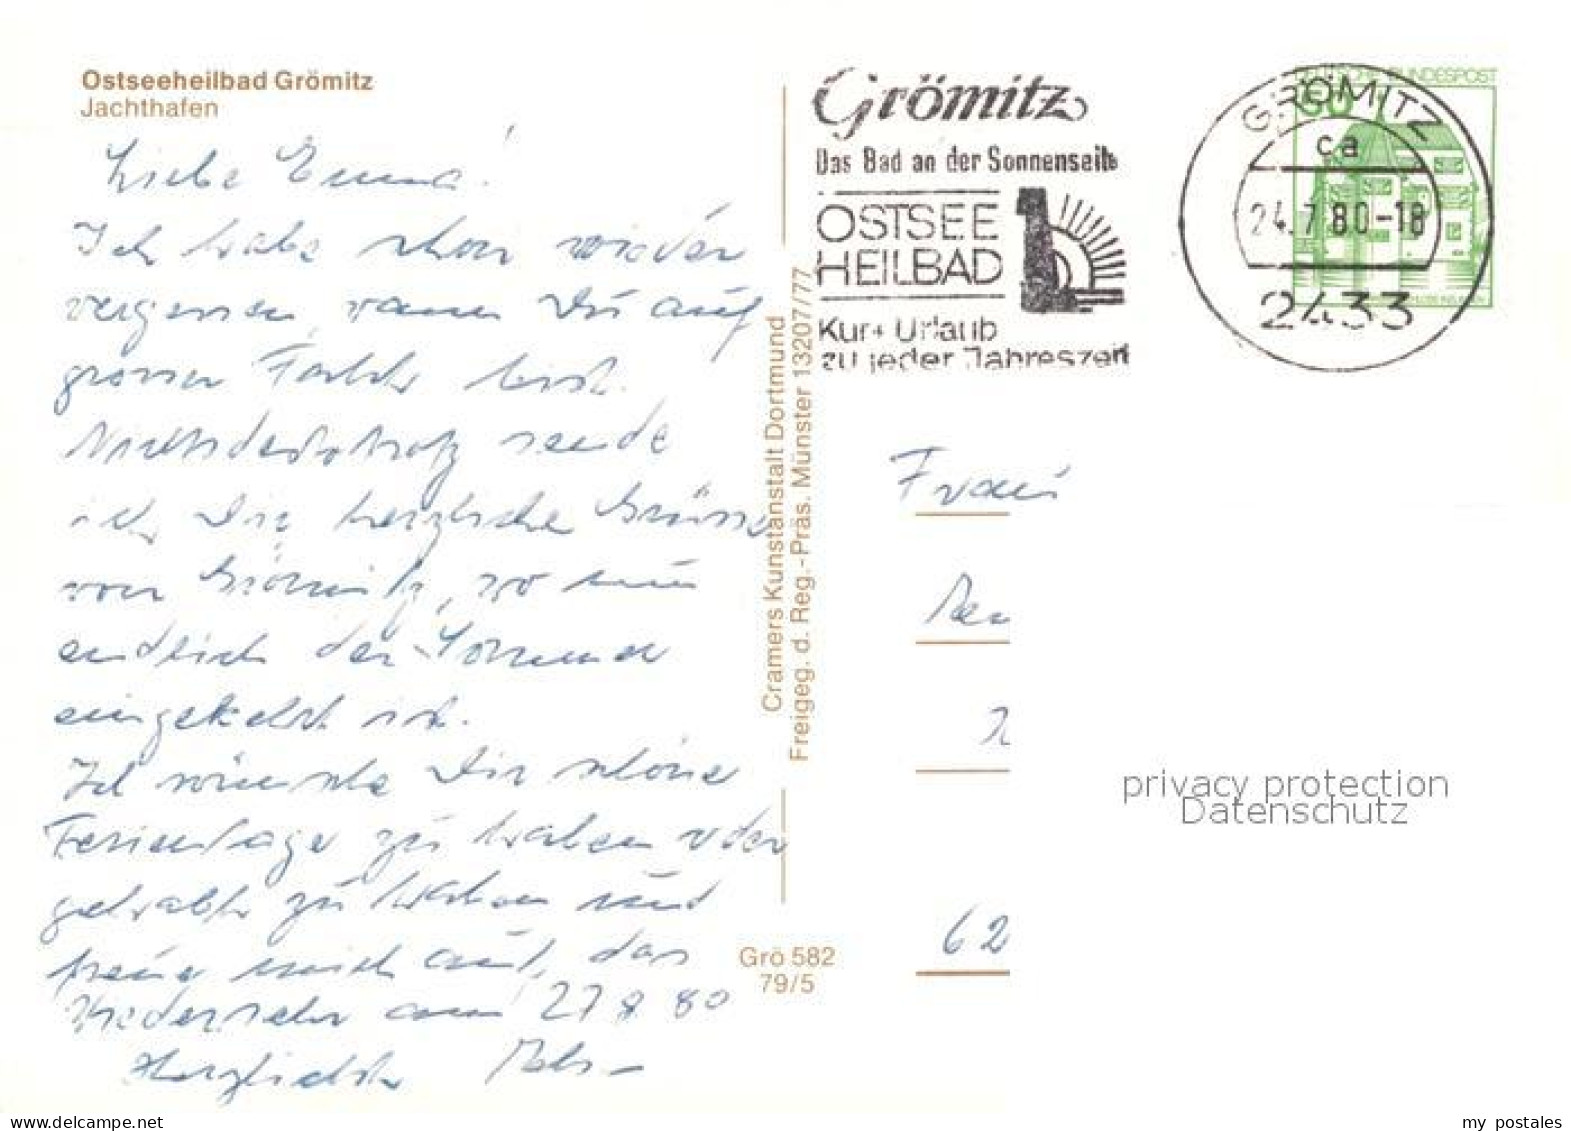 Ostseeheilbad Grömitz
Jachthafen
Liebe Emmi!
Ich habe schon wieder
vergessen, wann Du auf
grosser Fahrt bist.
Nichtsdestotrotz sende
ich Dir herzliche Grüsse
von Grömitz, wo nun
endlich der Sommer
eingekehrt ist.
Ich wünsche Dir schöne
Ferientage zu haben oder
gehabt zu haben und
freue mich auf das
Wiedersehn am 27 8 80
Herzlichst
Cramers Kunstanstalt Dortmund
Freigeg. d. Reg.-Präs. Münster 13207/77
Grö 582
79/5
Grömitz
Das Bad an der Sonnenseite
OSTSEE
HEILBAD
Kur+Urlaub
zu jeder Jahreszeit
DEUTSCHE BUNDESPOST
GRÖMITZ
ca
24.7.80-18
2433
Frau
62
privacy protection
Datenschutz
my postales